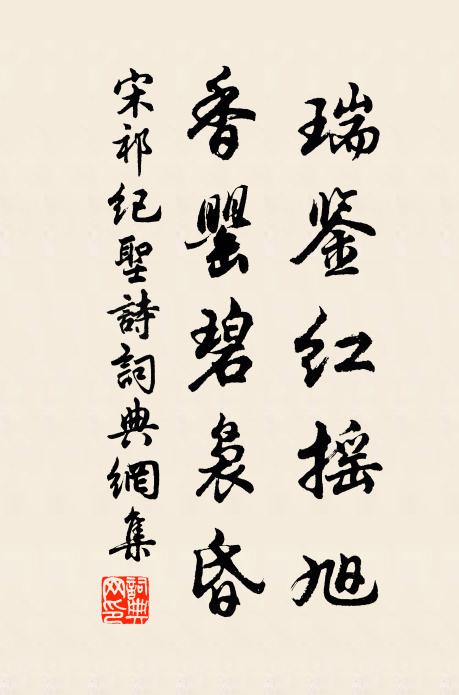 瑞鉴红摇旭
香罂碧袅昏
宋祁纪聖詩詞典網集
詞典网印